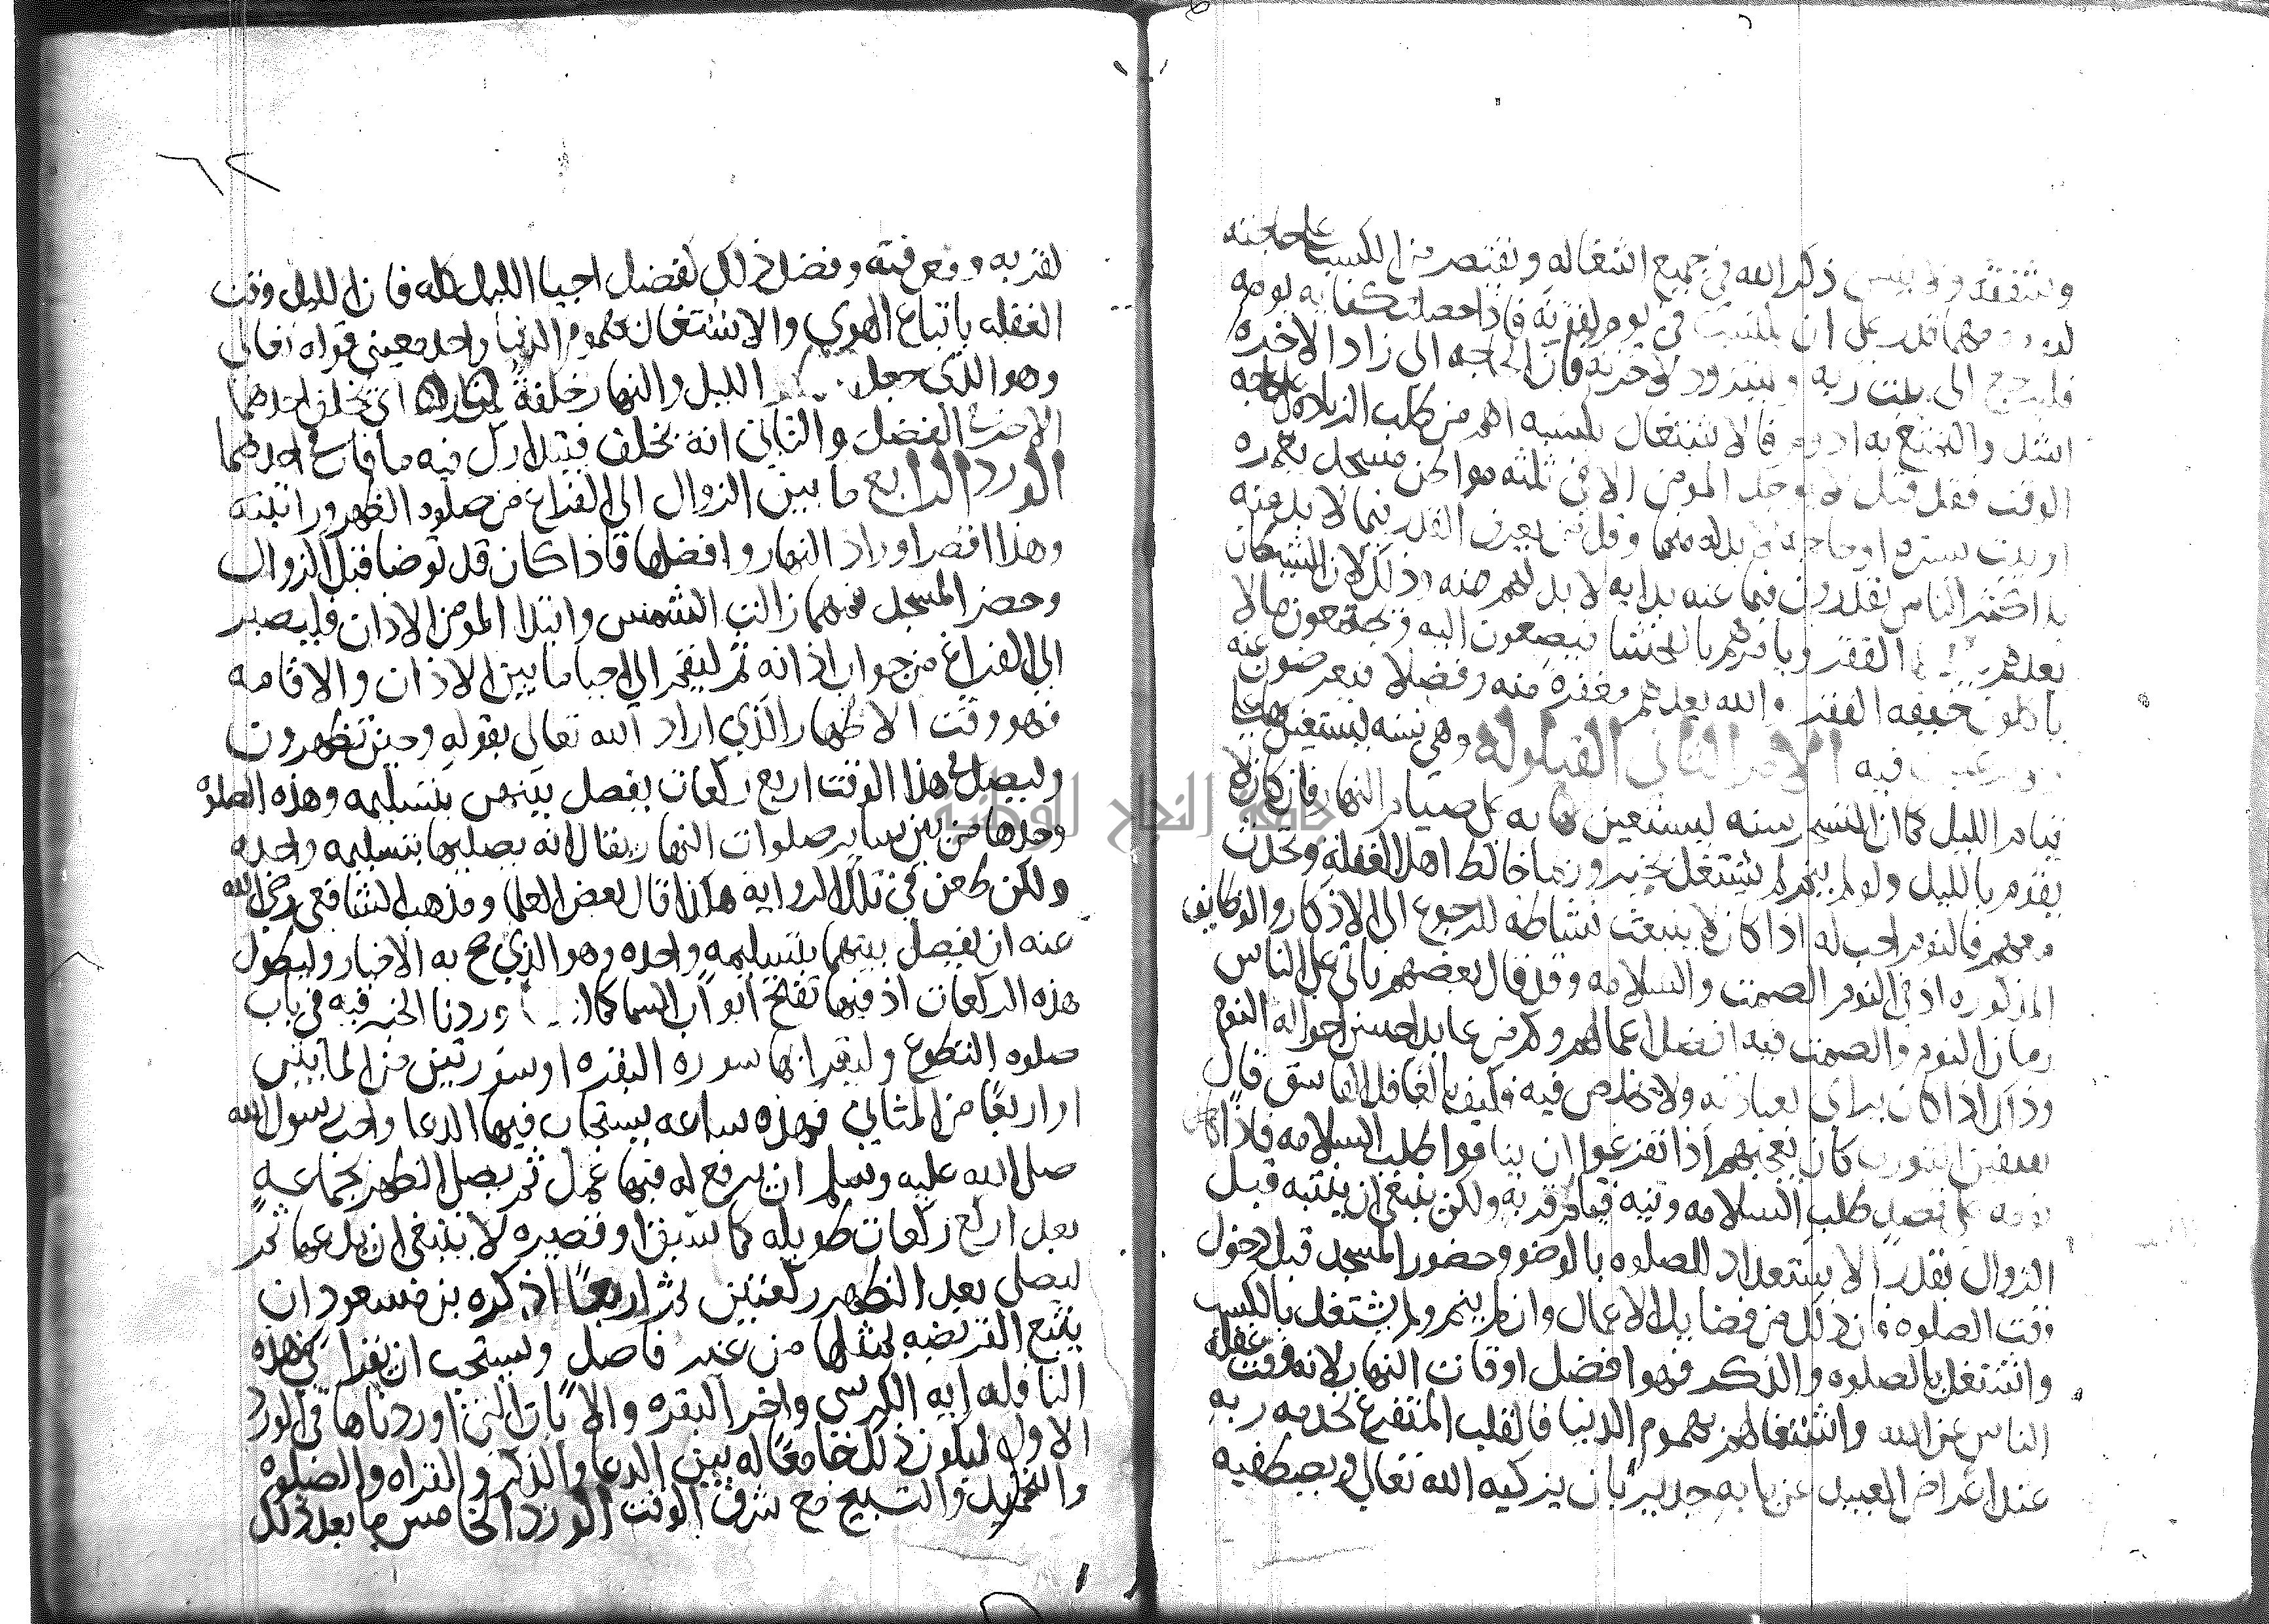 وشفقه ولا ينسى ذكر الله في جميع اشغاله ويقتصر من الكسب على حاجته
ليومه مهما قدر على ان يكتسب في يوم لقوته فاذا حصلت كفايه يومه
فليرجع الى بيت ربه وليتزود لاخرته فان الحاجه الى زاد الاخره
اشد والتمتع به ادوم فالاشتغال بكسبه اهم من طلب الزياده على حاجه
الوقت فقد قيل لا يوجد المومن الا في ثلثه مواطن مسجد يعمره
او بيت يستره او حاجه لا بد له منها وقل من يعرف القدر فيما لا بد منه
بل اكثر الناس يقدرون فيما عنه بد انه لا بد لهم منه وذلك لان الشيطان
يعدهم الفقر ويامرهم بالفحشا فيصغون اليه ويجمعون ما لا
ياكلون خيفه الفقر والله يعدهم مغفره منه وفضلا فيعرضون عنه
ولا يرغبون فيه الامر الثاني القيلوله وهي سنه ليستعين بها على
قيام الليل كما ان التسحر سنه ليستعين به على صيام النهار فان كان لا
يقوم بالليل ولو لم ينم لم يشتغل بخير وربما خالط اهل الغفله وتحدث
معهم فالنوم احب له اذا كان لا ينبعث نشاطه للرجوع الى الاذكار والوظايف
المذكوره اذ في النوم الصمت والسلامه وقد قال بعضهم ياتي على الناس
زمان النوم والصمت فيه افضل اعمالهم وكم من عابد احسن احواله النوم
وذلك اذا كان يراي بعبادته ولا يخلص فيه فكيف بالغافل الفاسق قال
سفين الثوري كان يعجبهم اذا تفرغوا ان يناموا طلب السلامه فاذا كان
نومه على قصد طلب السلامه ونيه قيام قربه ولكن ينبغي ان ينتبه قبل
الزوال بقدر الاستعداد للصلوه بالوضو وحضور المسجد قبل دخول
وقت الصلوه فان ذلك من فضايل الاعمال وان لم ينم ولم يشتغل بالكسب
واشتغل بالصلوه والذكر فهو افضل اوقات النهار لانه وقت غفله
الناس عن الله واشتغالهم بهموم الدنيا فالقلب المتفرغ لخدمه ربه
عند اعراض العبيد عن بابه جدير بان يزكيه الله تعالى ويصطفيه
٦٢
لقربه ومعرفته وفضل ذلك كفضل احيا الليل كله فان الليل وقت
الغفله باتباع الهوى والاشتغال بهموم الدنيا واحد معيني قوله تعالى
وهو الذي جعل الليل والنهار خلفة لمن اراد اي يخلف احدهما
الاخر في الفضل والثاني انه يخلف فيتدارك فيه ما فات في احدهما
الورد الرابع ما بين الزوال الى الفراغ من صلوه الظهر وراتبته
وهذا اقصر اوراد النهار وافضلها فاذا كان قد توضا قبل الزوال
وحضر المسجد فمهما زالت الشمس وابتدا الموذن الاذان فليصبر
الى الفراغ من جواب اذانه ثم ليقم الى احيا ما بين الاذان والاقامه
فهو وقت الاظهار الذي اراد الله تعالى بقوله وحين تظهرون
وليصل في هذا الوقت اربع ركعات يفصل بينهن بتسليمه وهذه الصلوه
وحدها من بين ساير صلوات النهار يقال انه يصليها بتسليمه واحده
ولكن طعن في تلك الروايه هكذا قال بعض العلما ومذهب الشافعي رضي الله
عنه ان يفصل بينهما بتسليمه واحده وهو الذي صح به الاخبار وليطول
هذه الركعات اذ فيها تفتح ابواب السما كما وردنا الخبر فيه في باب
صلوه التطوع وليقرا بها سوره البقره او سورتين من المايتين
او اربعا من المثاني فهذه ساعه يستجاب فيها الدعا واحب رسول الله
صلى الله عليه وسلم ان يرفع له فيها عمل ثم يصل الظهر بجماعه
بعد اربع ركعات طويله كما سبق او قصيره لا ينبغي ان يدعها ثم
ليصلي بعد الظهر ركعتين ثم اربعا اذ كره بن مسعود ان
يتبع الفريضه بمثلها من غير فاصل ويستحب ان يقرا في هذه
النافله ايه الكرسي واخر البقره والايات التي اوردناها في الورد
الاول ليكون ذلك جامعا له بين الدعا والذكر والقراه والصلوه
والتحميد والتسبيح مع شرف الوقت الورد الخامس ما بعد ذلك
جامعة النجاح الوطنية